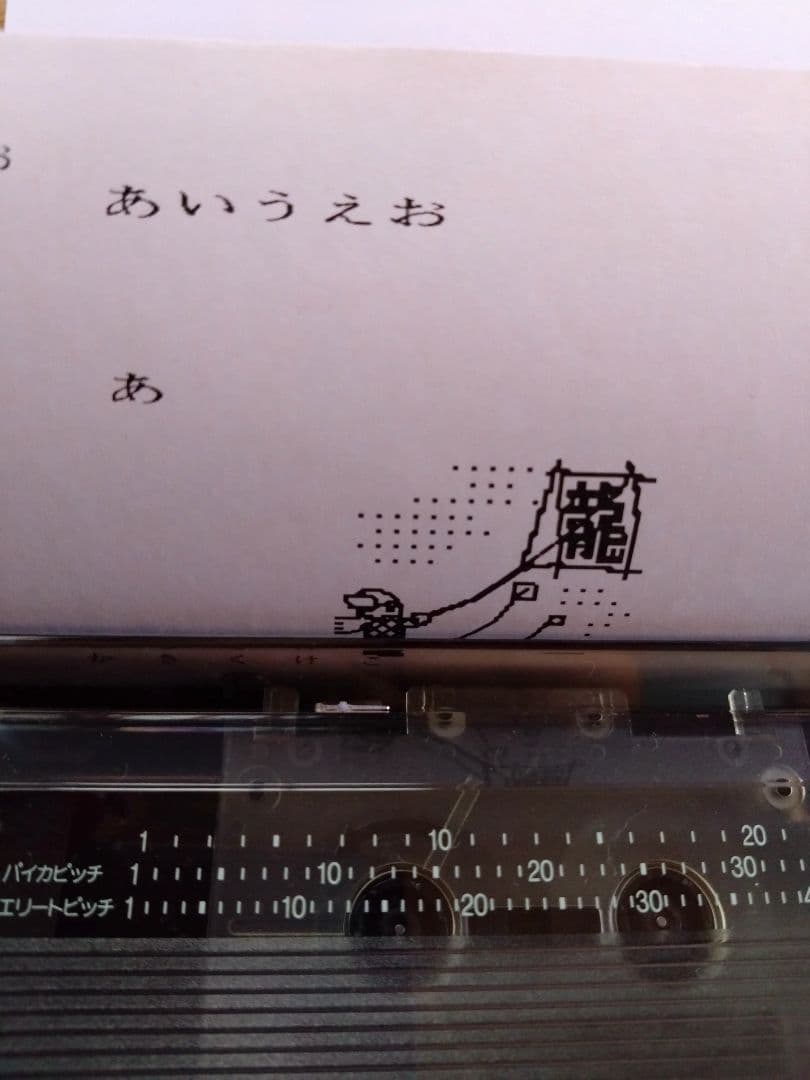 お
あいうえお
あ
龍
1 10 20
パイカピッチ 1 10 20 30
エリートピッチ 1 10 20 30 4